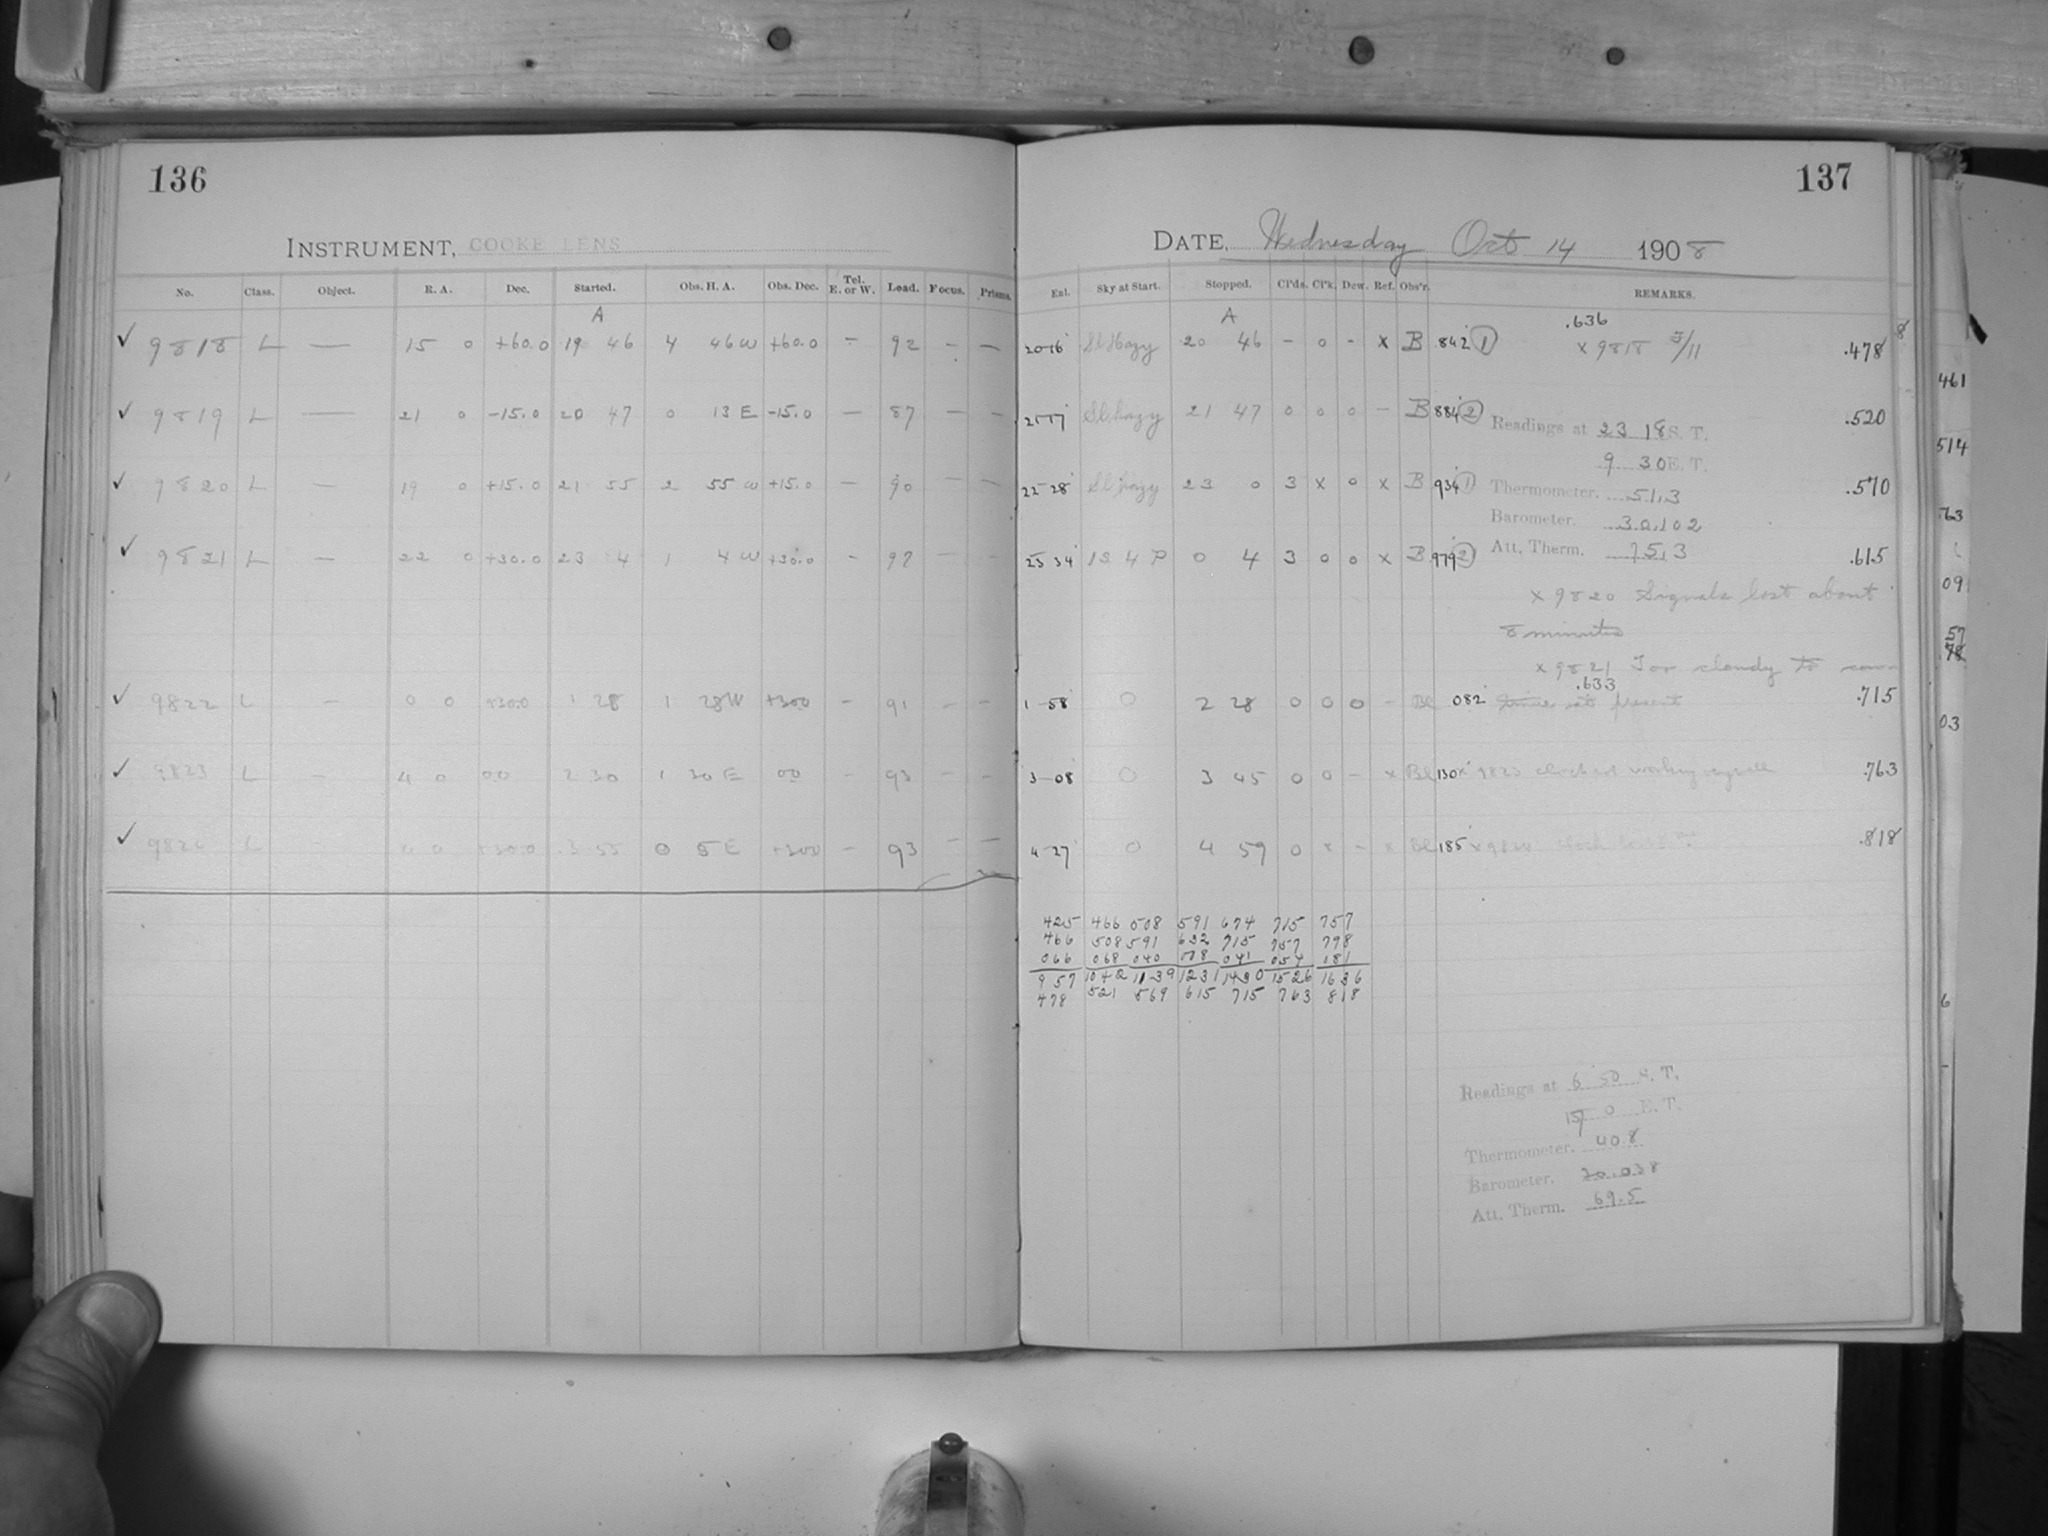 136
INSTRUMENT, COOKE LENS
No. Class. Object. R. A. Dec. Started. Obs. H. A. Obs. Dec. Tel. E. or W. Lead. Focus. Prisms.
A
✓ 9818 L — 15 0 +60.0 19 46 4 46 W +60.0 — 92 — —
✓ 9819 L — 21 0 -15.0 20 47 0 13 E -15.0 — 87 — —
✓ 9820 L — 19 0 +15.0 21 55 2 55 W +15.0 — 90 — —
✓ 9821 L — 22 0 +30.0 23 4 1 4 W +30.0 — 97 — —
✓ 9822 L — 0 0 +30.0 1 28 1 28 W +30.0 — 91 — —
✓ 9823 L — 4 0 00 2 30 1 30 E 00 — 93 — —
✓ 9824 L — 4 0 +30.0 3 55 0 5 E +30.0 — 93 — —
137
DATE, Wednesday Oct 14 1908
Exl. Sky at Start. Stopped. Cl'ds. Cl'k. Dew. Ref. Obs'r. REMARKS.
A
.636
20 16 Sl Hazy 20 46 — 0 — x B .842 1 x 9818 3/11 .478
21 17 Sl. hazy 21 47 0 0 0 — B 884 2 .520
Readings at 23 18 S. T.
9 30 E. T.
22 28 Sl hazy 23 0 3 x 0 x B 934 1 .570
Thermometer. 51.3
Barometer. 30.102
23 34 IS 4 P 0 4 3 0 0 x B 979 2 .615
Att. Therm. 75.3
x 9820 Signals lost about
8 minutes
x 9821 Too cloudy to con-
.633
1 58 0 2 28 0 0 0 — Bl 082 tinue at present .715
3 08 0 3 45 0 0 — x Bl 130 x 9823 clock not working very well .763
4 27 0 4 59 0 x — x Bl 185 x 9824 clock .818
425 466 508 591 674 715 757
466 508 591 632 715 757 798
066 068 040 008 041 054 081
957 1042 1139 1231 1430 1526 1636
478 521 569 615 715 763 818
Readings at 6 50 S. T.
E. T.
Thermometer. 40.8
Barometer. 30.038
Att. Therm. 69.5
461
514
63
09
57
78
03
6